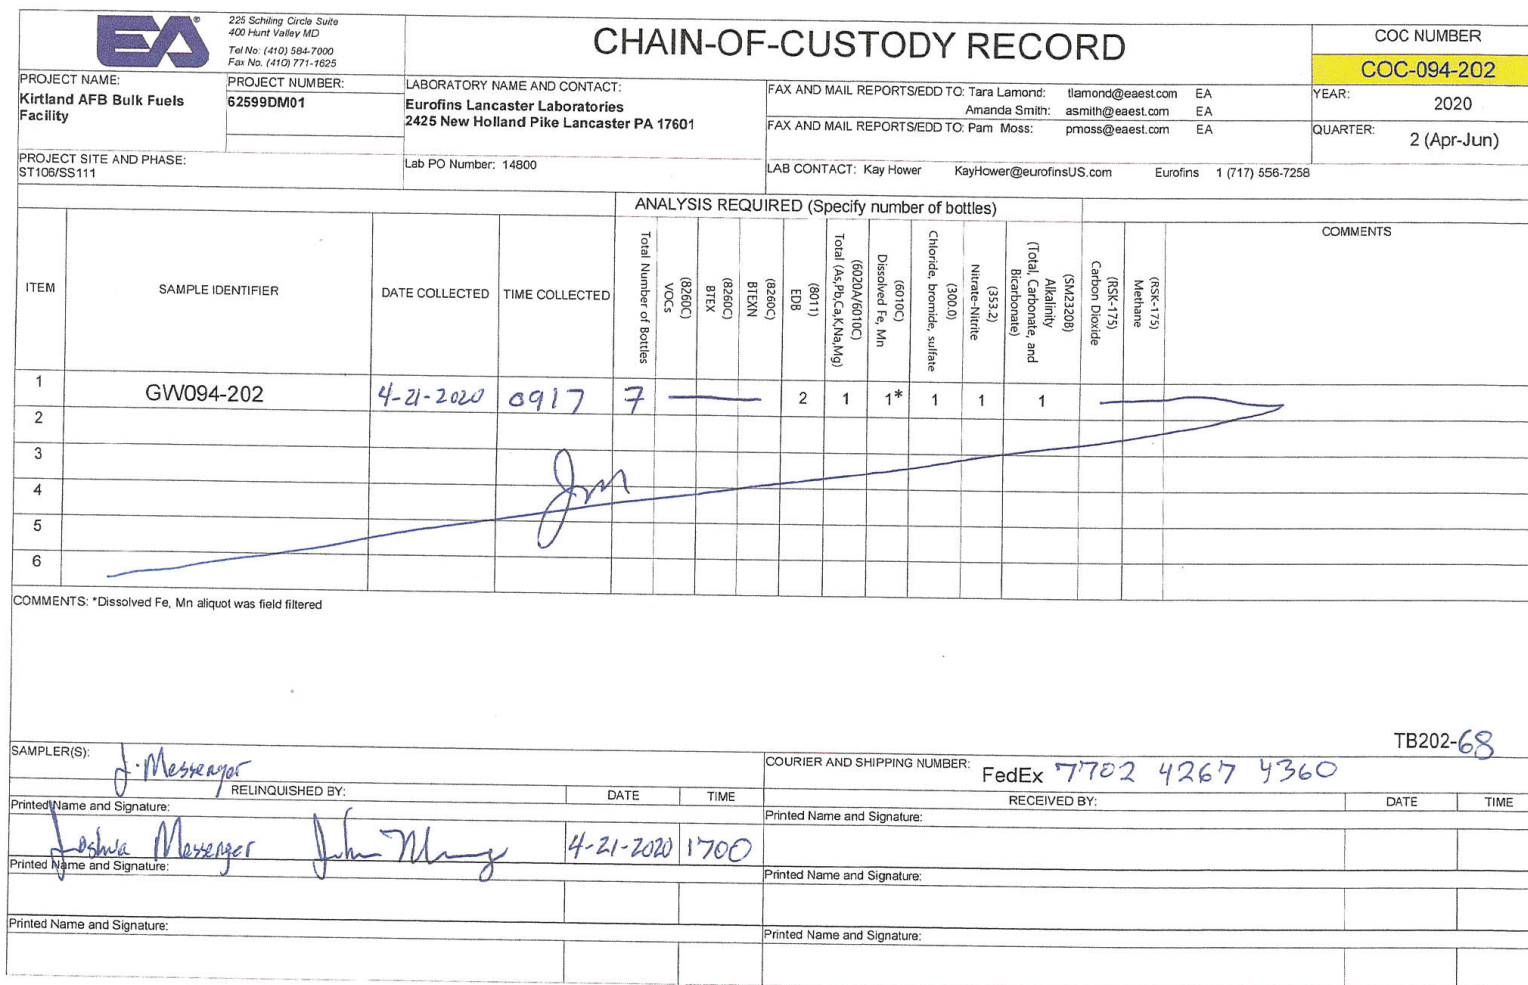 EA®
225 Schiling Circle Suite
400 Hunt Valley MD
Tel No: (410) 584-7000
Fax No. (410) 771-1625
CHAIN-OF-CUSTODY RECORD
COC NUMBER
COC-094-202
PROJECT NAME:
Kirtland AFB Bulk Fuels
Facility
PROJECT NUMBER:
62599DM01
LABORATORY NAME AND CONTACT:
Eurofins Lancaster Laboratories
2425 New Holland Pike Lancaster PA 17601
FAX AND MAIL REPORTS/EDD TO: Tara Lamond: tlamond@eaest.com EA
Amanda Smith: asmith@eaest.com EA
FAX AND MAIL REPORTS/EDD TO: Pam Moss: pmoss@eaest.com EA
YEAR:
2020
QUARTER:
2 (Apr-Jun)
PROJECT SITE AND PHASE:
ST106/SS111
Lab PO Number: 14800
LAB CONTACT: Kay Hower KayHower@eurofinsUS.com Eurofins 1 (717) 556-7258
ANALYSIS REQUIRED (Specify number of bottles)
ITEM
SAMPLE IDENTIFIER
DATE COLLECTED
TIME COLLECTED
Total Number of Bottles
(8260C)
VOCs
(8260C)
BTEX
(8260C)
BTEXN
(8011)
EDB
(6020A/6010C)
Total (As,Pb,Ca,K,Na,Mg)
(6010C)
Dissolved Fe, Mn
(300.0)
Chloride, bromide, sulfate
(353.2)
Nitrate-Nitrite
(SM2320B)
Alkalinity
(Total, Carbonate, and
Bicarbonate)
(RSK-175)
Carbon Dioxide
(RSK-175)
Methane
COMMENTS
1 GW094-202 4-21-2020 0917 7 2 1 1* 1 1 1
2
3
4
5
6
Jm
COMMENTS: *Dissolved Fe, Mn aliquot was field filtered
TB202-68
SAMPLER(S): J. Messenger
COURIER AND SHIPPING NUMBER: FedEx 7702 4267 4360
RELINQUISHED BY: DATE TIME
RECEIVED BY: DATE TIME
Printed Name and Signature:
Printed Name and Signature:
Joshua Messenger 4-21-2020 1700
Printed Name and Signature:
Printed Name and Signature:
Printed Name and Signature:
Printed Name and Signature: